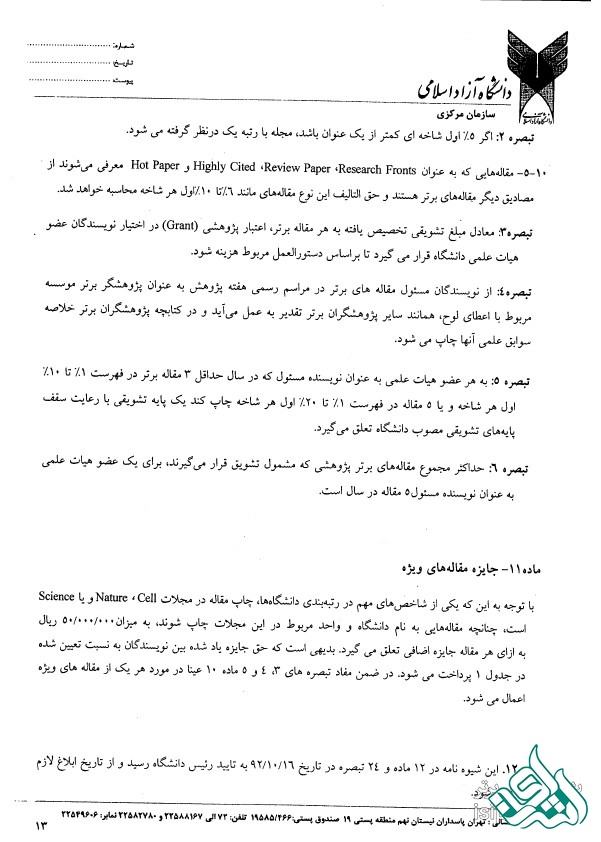 شماره:
تاریخ:
پیوست:
دانشگاه آزاد اسلامی
سازمان مرکزی
تبصره ۲: اگر ۵٪ اول شاخه ای کمتر از یک عنوان باشد، مجله با رتبه یک درنظر گرفته می شود.
۱۰-۵- مقاله‌هایی که به عنوان Highly Cited ،Review Paper ،Research Fronts و Hot Paper معرفی می‌شوند از
مصادیق دیگر مقاله‌های برتر هستند و حق التالیف این نوع مقاله‌های مانند ۶٪ تا ۱۰٪ اول هر شاخه محاسبه خواهد شد.
تبصره۳: معادل مبلغ تشویقی تخصیص یافته به هر مقاله برتر، اعتبار پژوهشی (Grant) در اختیار نویسندگان عضو
هیات علمی دانشگاه قرار می گیرد تا براساس دستورالعمل مربوط هزینه شود.
تبصره٤: از نویسندگان مسئول مقاله های برتر در مراسم رسمی هفته پژوهش به عنوان پژوهشگر برتر موسسه
مربوط با اعطای لوح، همانند سایر پژوهشگران برتر تقدیر به عمل می‌آید و در کتابچه پژوهشگران برتر خلاصه
سوابق علمی آنها چاپ می شود.
تبصره ۵: به هر عضو هیات علمی به عنوان نویسنده مسئول که در سال حداقل ۳ مقاله برتر در فهرست ۱٪ تا ۱۰٪
اول هر شاخه و یا ۵ مقاله در فهرست ۱٪ تا ۲۰٪ اول هر شاخه چاپ کند یک پایه تشویقی با رعایت سقف
پایه‌های تشویقی مصوب دانشگاه تعلق می‌گیرد.
تبصره ٦: حداکثر مجموع مقاله‌های برتر پژوهشی که مشمول تشویق قرار می‌گیرند، برای یک عضو هیات علمی
به عنوان نویسنده مسئول۵ مقاله در سال است.
ماده۱۱- جایزه مقاله‌های ویژه
با توجه به این که یکی از شاخص‌های مهم در رتبه‌بندی دانشگاه‌ها، چاپ مقاله در مجلات Nature ، Cell و یا Science
است، چنانچه مقاله‌هایی به نام دانشگاه و واحد مربوط در این مجلات چاپ شوند، به میزان۵۰/۰۰۰/۰۰۰ ریال
به ازای هر مقاله جایزه اضافی تعلق می گیرد. بدیهی است که حق جایزه یاد شده بین نویسندگان به نسبت تعیین شده
در جدول ۱ پرداخت می شود. در ضمن مفاد تبصره های ۳، ٤ و ۵ ماده ۱۰ عینا در مورد هر یک از مقاله های ویژه
اعمال می شود.
۱۲. این شیوه نامه در ۱۲ ماده و ۲٤ تبصره در تاریخ ۹۲/۱۰/۱۶ به تایید رئیس دانشگاه رسید و از تاریخ ابلاغ لازم
تهران پاسداران نیستان نهم منطقه پستی ۱۹ صندوق پستی:۱۹۵۸۵/۴۶۶ تلفن: ۷۳ الی ۲۲۵۸۸۱۶۷ و ۲۲۵۸۲۷۸۰ نمابر: ۲۲۵۴۹۶۰۶
۱۳